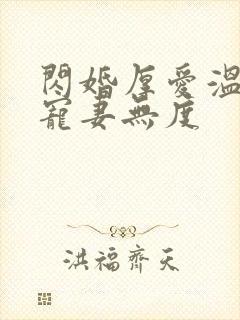 閃婚厚愛溫
寵妻無度
洪福齊天